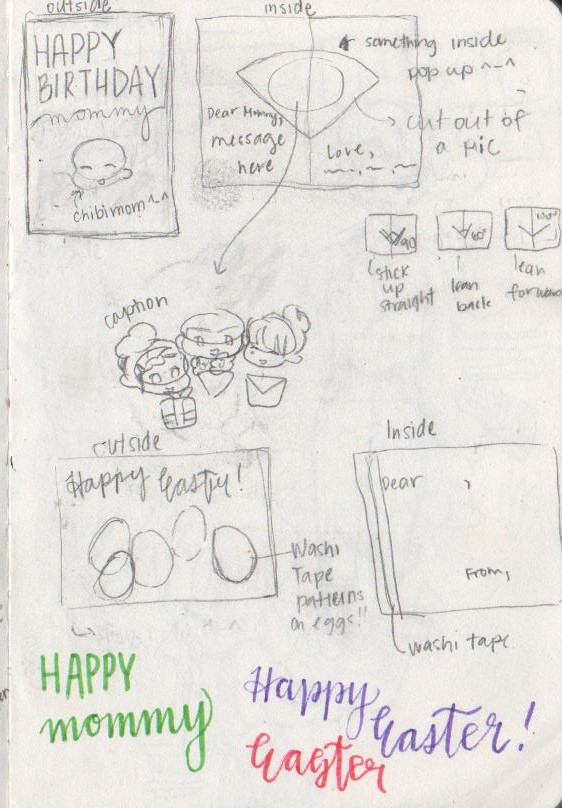 outside
HAPPY
BIRTHDAY
mommy
chibi mom ^^
inside
something inside
pop up ^-^
cut out of
a pic
Dear Mommy,
message
here
Love,
90
60°
stick
up
straight
lean
back
lean
forward
caption
outside
Happy Easter!
Washi
Tape
patterns
on eggs!!
Inside
Dear ,
From,
washi tape
HAPPY
mommy
Happy
Easter!
Easter